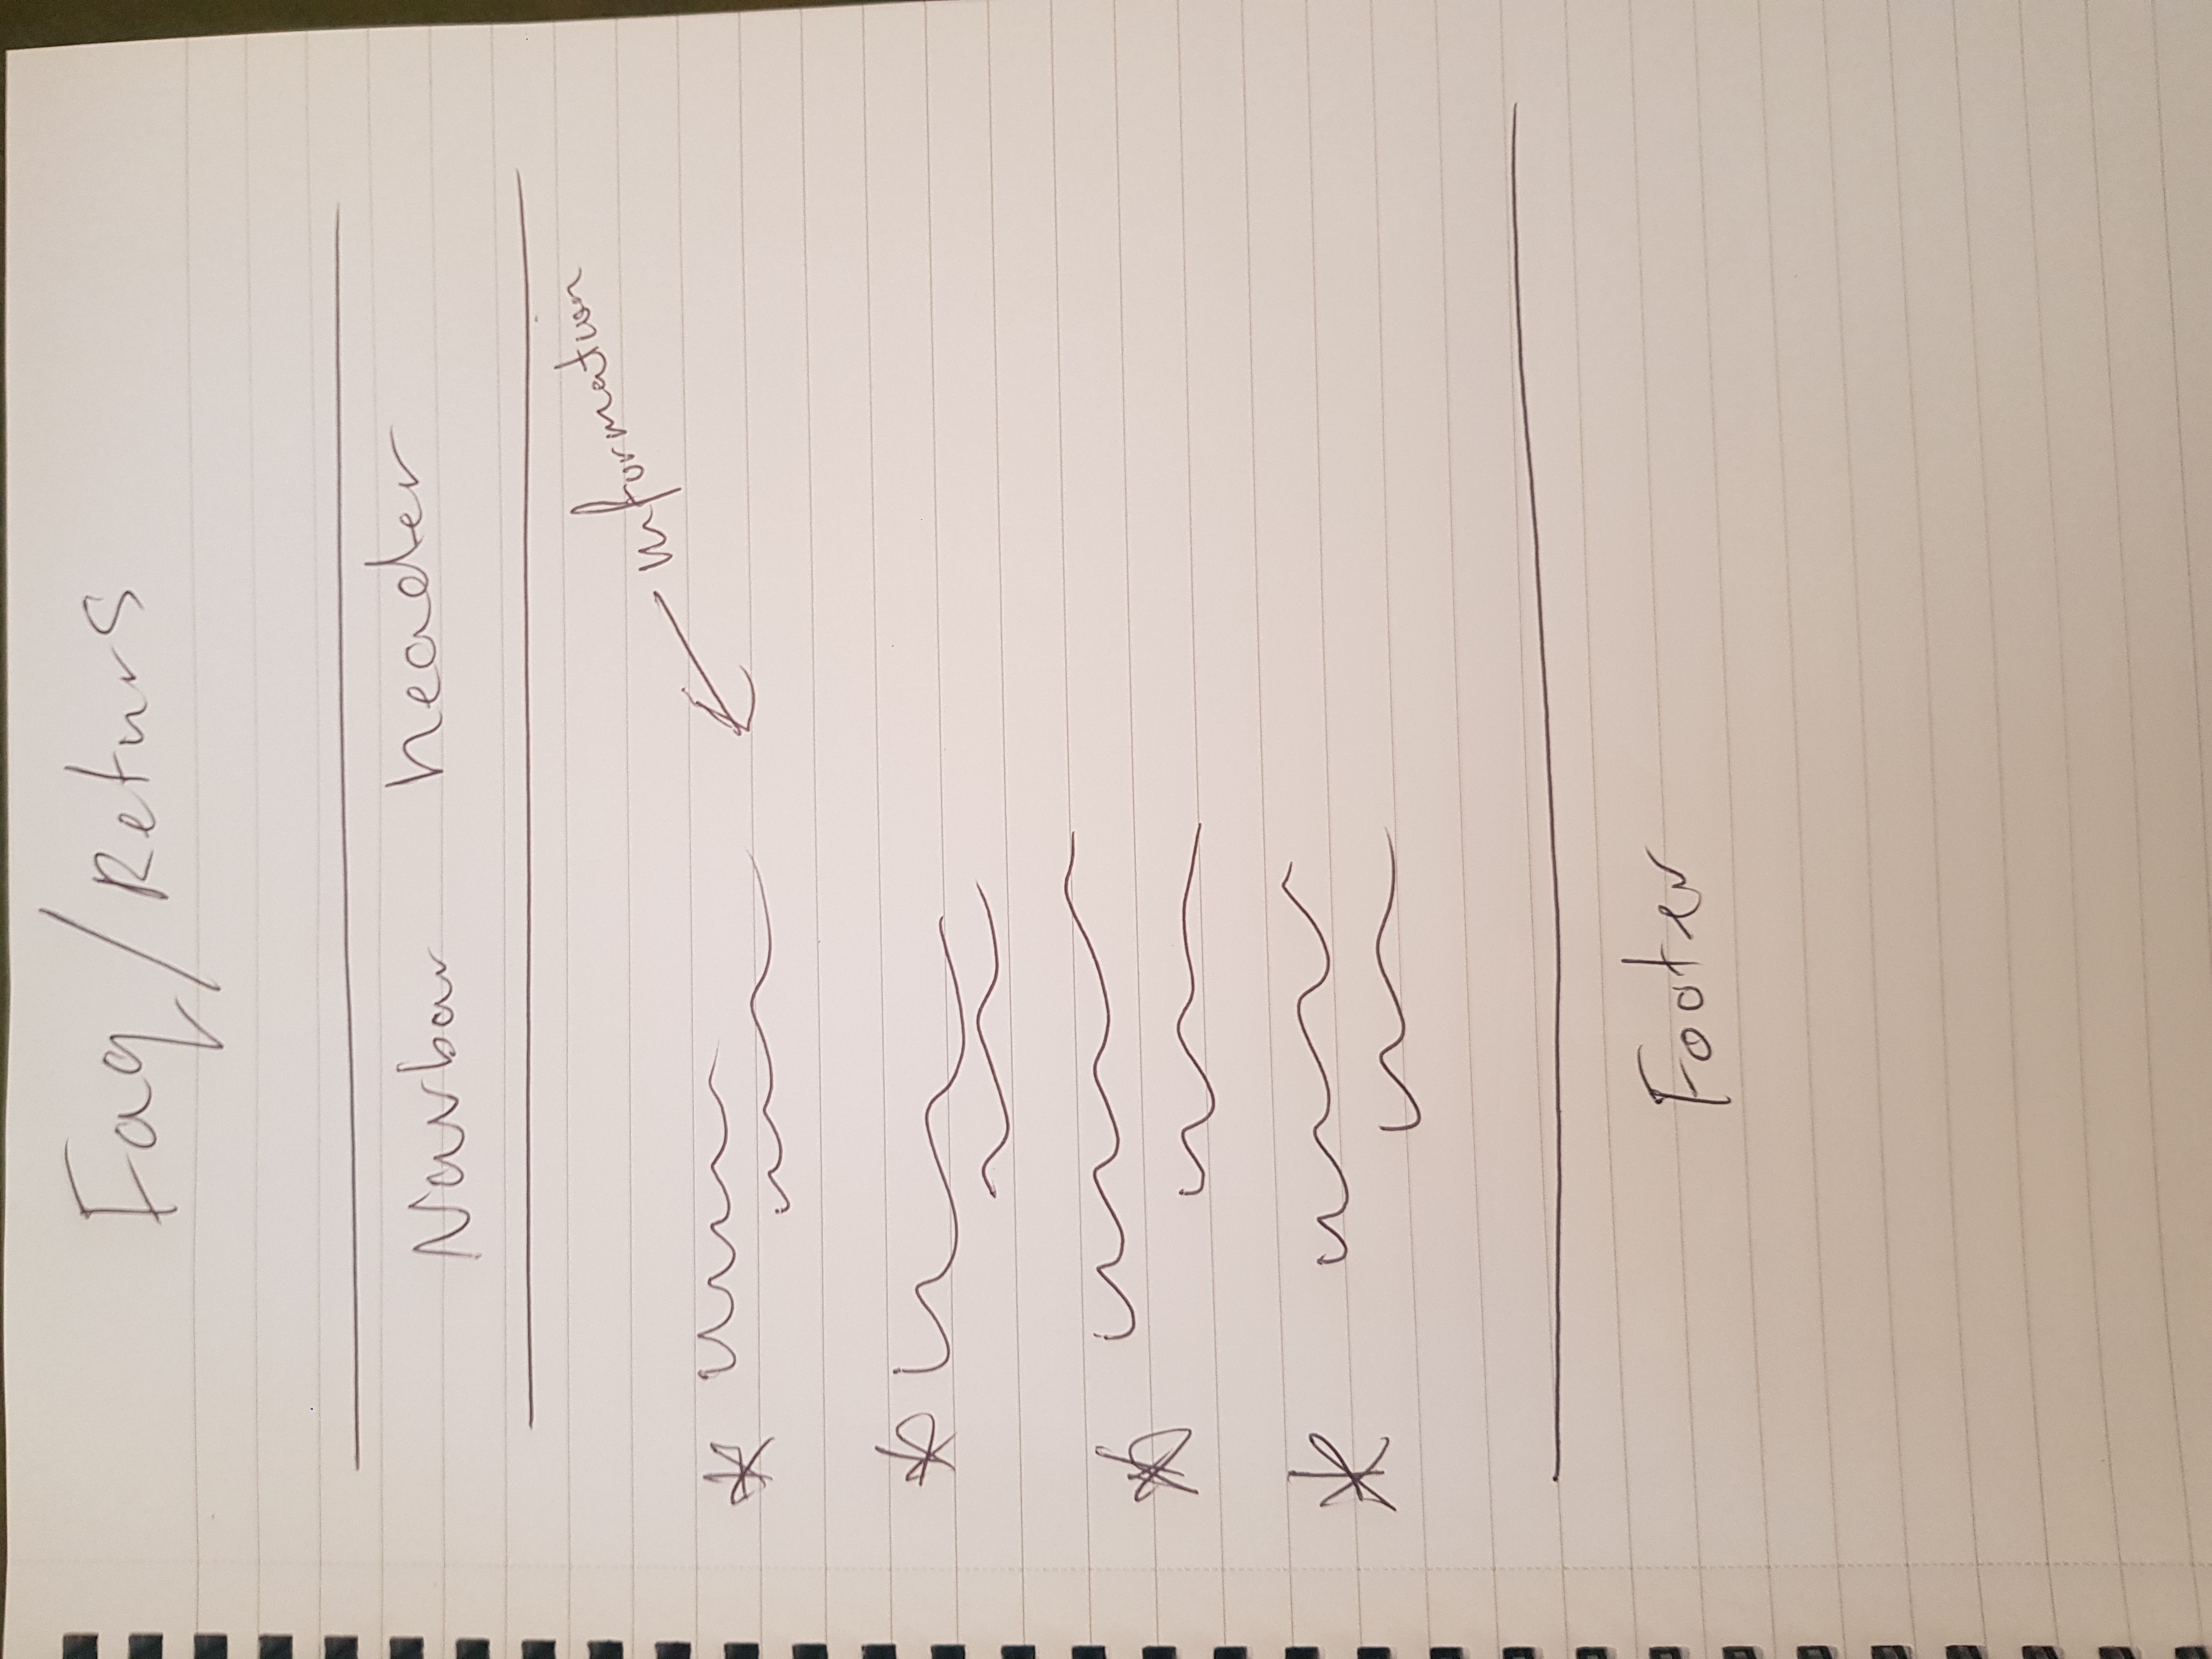 Faq/Returs
Navbar header
information
*
*
*
*
Footer